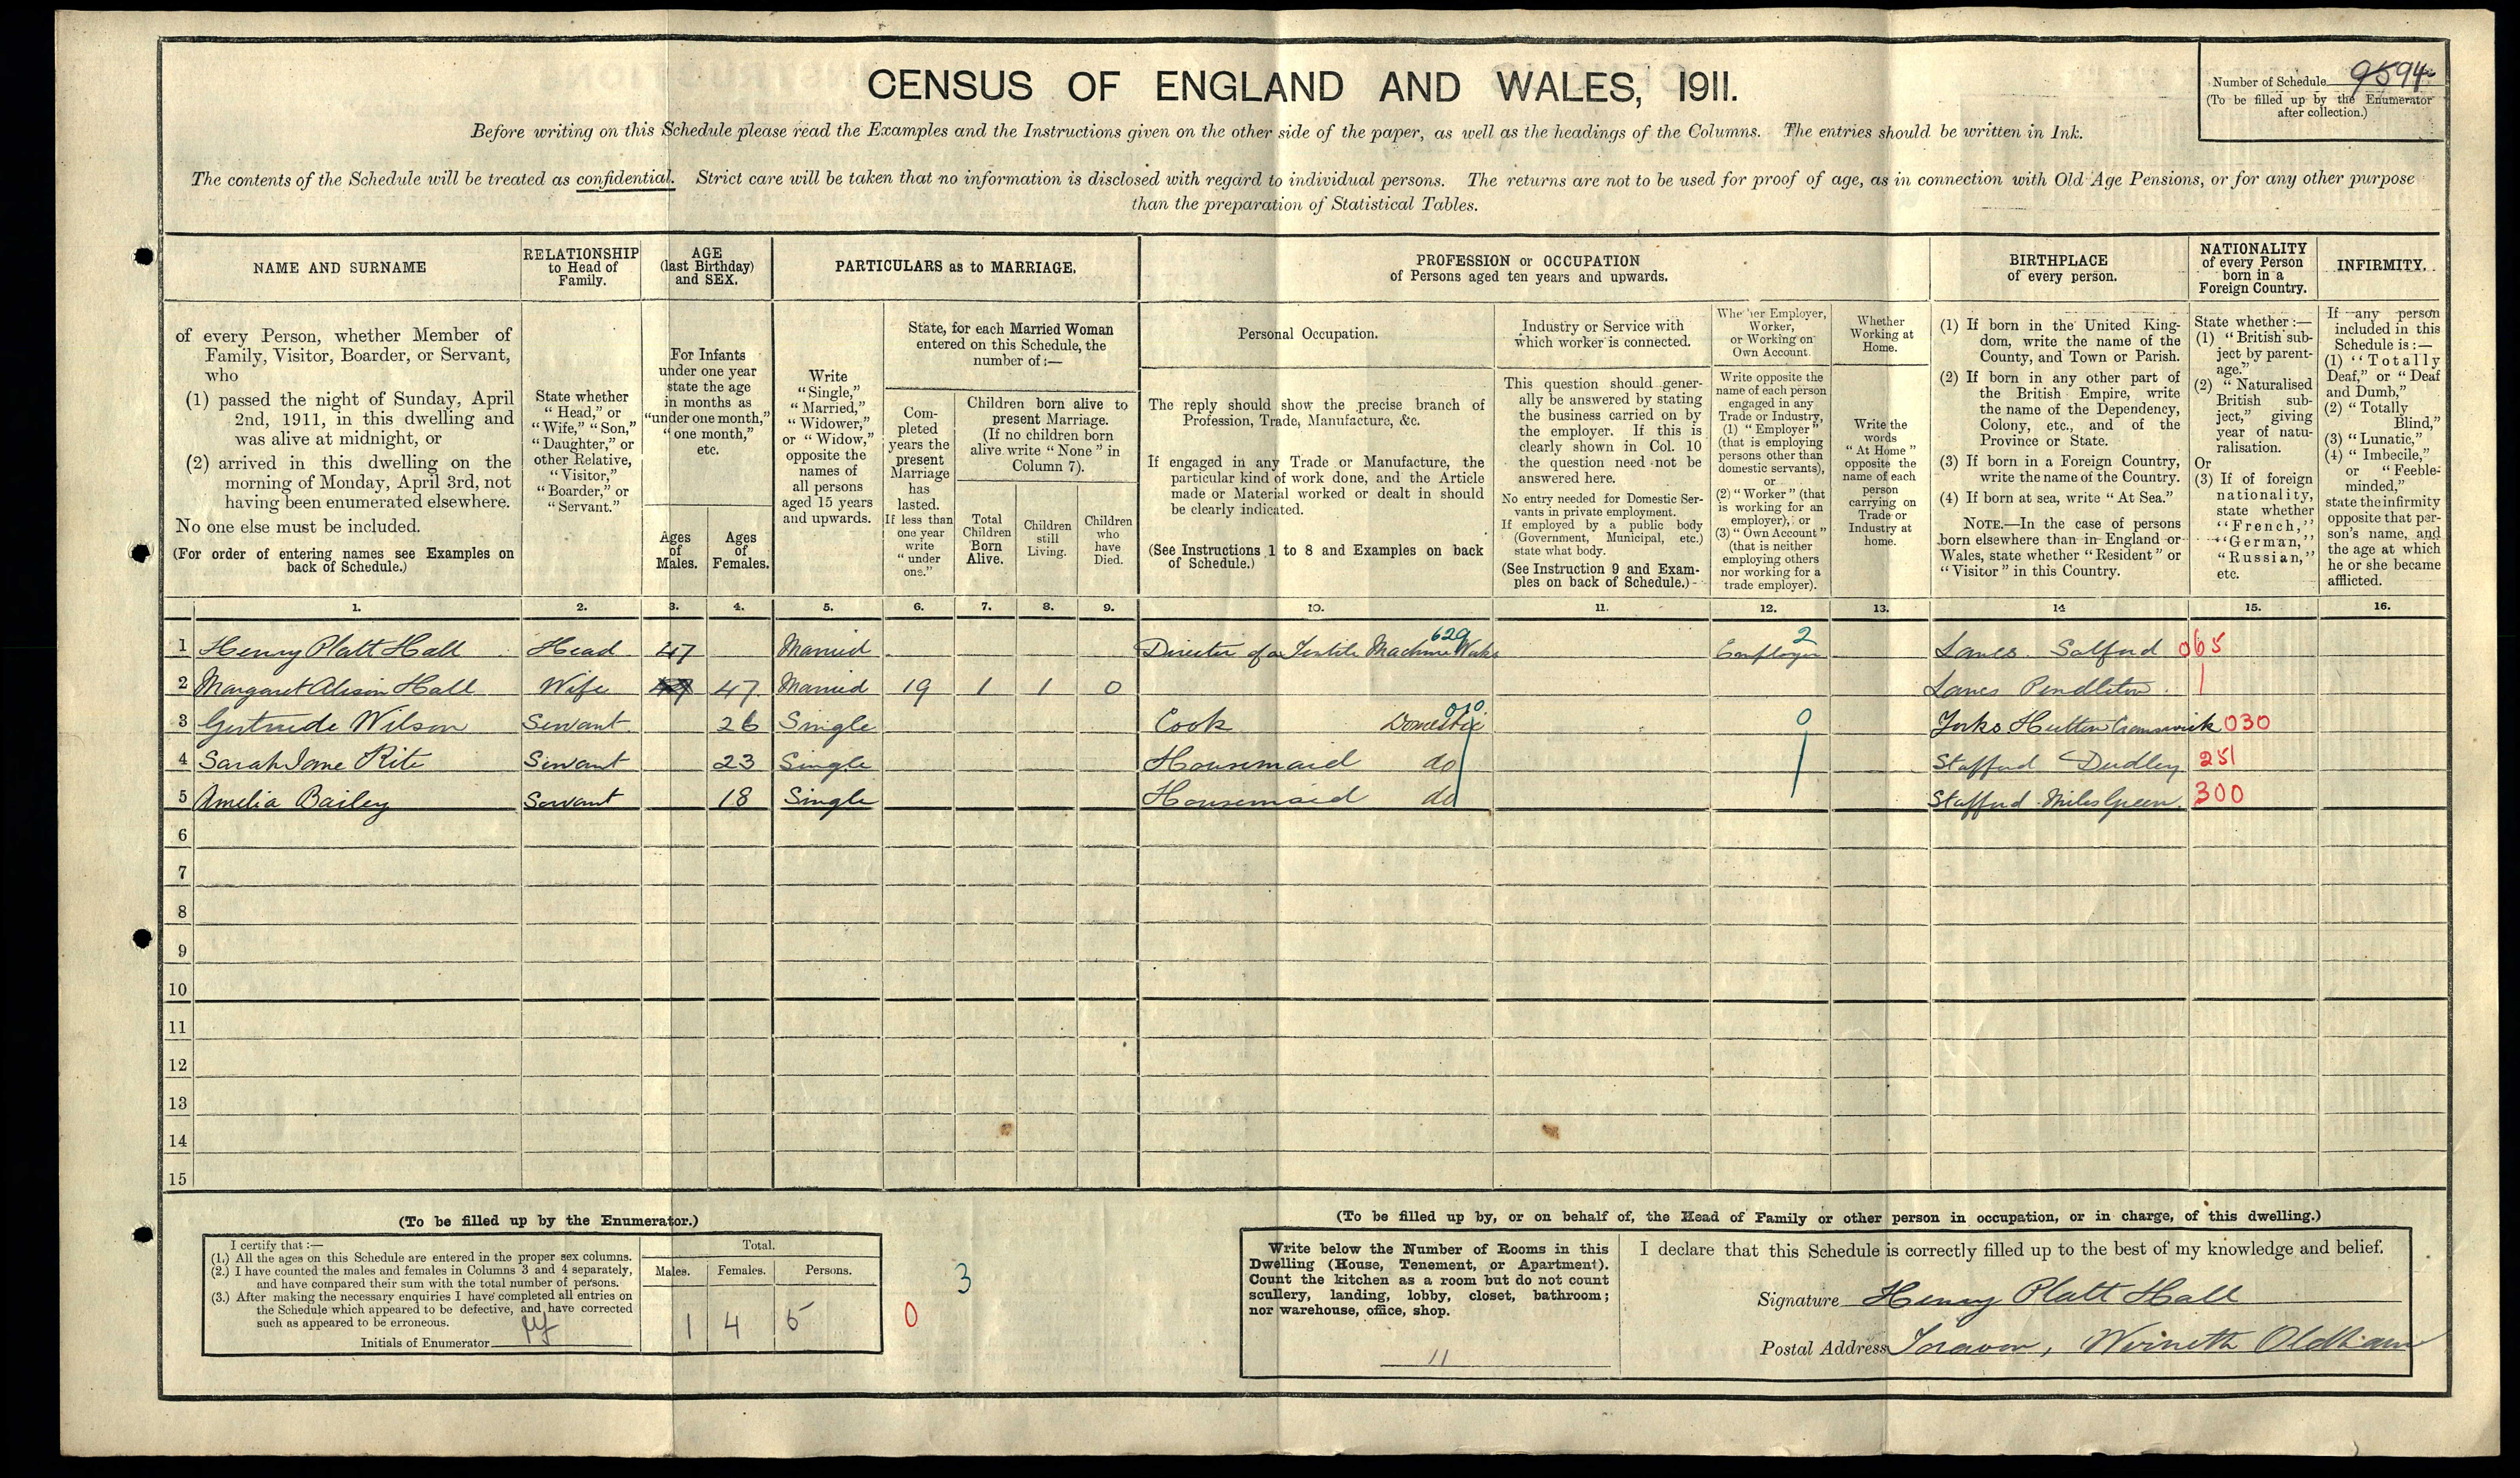 CENSUS OF ENGLAND AND WALES, 1911.
Number of Schedule 95 94
(To be filled up by the Enumerator
after collection.)
Before writing on this Schedule please read the Examples and the Instructions given on the other side of the paper, as well as the headings of the Columns. The entries should be written in Ink.
The contents of the Schedule will be treated as confidential. Strict care will be taken that no information is disclosed with regard to individual persons. The returns are not to be used for proof of age, as in connection with Old Age Pensions, or for any other purpose
than the preparation of Statistical Tables.
NAME AND SURNAME
of every Person, whether Member of
Family, Visitor, Boarder, or Servant,
who
(1) passed the night of Sunday, April
2nd, 1911, in this dwelling and
was alive at midnight, or
(2) arrived in this dwelling on the
morning of Monday, April 3rd, not
having been enumerated elsewhere.
No one else must be included.
(For order of entering names see Examples on
back of Schedule.)
RELATIONSHIP
to Head of
Family.
State whether
"Head," or
"Wife," "Son,"
"Daughter," or
other Relative,
"Visitor,"
"Boarder," or
"Servant."
AGE
(last Birthday)
and SEX.
For Infants
under one year
state the age
in months as
"under one month,"
"one month,"
etc.
Ages
of
Males.
Ages
of
Females.
PARTICULARS as to MARRIAGE.
Write
"Single,"
"Married,"
"Widower,"
or "Widow,"
opposite the
names of
all persons
aged 15 years
and upwards.
State, for each Married Woman
entered on this Schedule, the
number of:—
Com-
pleted
years the
present
Marriage
has
lasted.
If less than
one year
write
"under
one."
Children born alive to
present Marriage.
(If no children born
alive write "None" in
Column 7).
Total
Children
Born
Alive.
Children
still
Living.
Children
who
have
Died.
PROFESSION or OCCUPATION
of Persons aged ten years and upwards.
Personal Occupation.
The reply should show the precise branch of
Profession, Trade, Manufacture, &c.
If engaged in any Trade or Manufacture, the
particular kind of work done, and the Article
made or Material worked or dealt in should
be clearly indicated.
(See Instructions 1 to 8 and Examples on back
of Schedule.)
Industry or Service with
which worker is connected.
This question should gener-
ally be answered by stating
the business carried on by
the employer. If this is
clearly shown in Col. 10
the question need not be
answered here.
No entry needed for Domestic Ser-
vants in private employment.
If employed by a public body
(Government, Municipal, etc.)
state what body.
(See Instruction 9 and Exam-
ples on back of Schedule.)
Whether Employer,
Worker,
or Working on
Own Account.
Write opposite the
name of each person
engaged in any
Trade or Industry,
(1) "Employer"
(that is employing
persons other than
domestic servants),
or
(2) "Worker" (that
is working for an
employer), or
(3) "Own Account"
(that is neither
employing others
nor working for a
trade employer).
Whether
Working at
Home.
Write the
words
"At Home"
opposite the
name of each
person
carrying on
Trade or
Industry at
home.
BIRTHPLACE
of every person.
(1) If born in the United King-
dom, write the name of the
County, and Town or Parish.
(2) If born in any other part of
the British Empire, write
the name of the Dependency,
Colony, etc., and of the
Province or State.
(3) If born in a Foreign Country,
write the name of the Country.
(4) If born at sea, write "At Sea."
NOTE.—In the case of persons
born elsewhere than in England or
Wales, state whether "Resident" or
"Visitor" in this Country.
NATIONALITY
of every Person
born in a
Foreign Country.
State whether:—
(1) "British sub-
ject by parent-
age."
(2) "Naturalised
British sub-
ject," giving
year of natu-
ralisation.
Or
(3) If of foreign
nationality,
state whether
"French,"
"German,"
"Russian,"
etc.
INFIRMITY.
If any person
included in this
Schedule is:—
(1) "Totally
Deaf," or "Deaf
and Dumb,"
(2) "Totally
Blind,"
(3) "Lunatic,"
(4) "Imbecile,"
or "Feeble-
minded,"
state the infirmity
opposite that per-
son's name, and
the age at which
he or she became
afflicted.
1. 2. 3. 4. 5. 6. 7. 8. 9. 10. 11. 12. 13. 14 15. 16.
629 2
1 Henry Platt Hall Head 47 Married Director of a Textile Machine Works Employer Lancs. Salford 065
2 Margaret Alison Hall Wife 47 Married 19 1 1 0 Lancs Pendleton
010 0
3 Gertrude Wilson Servant 26 Single Cook Domestic Yorks Hutton Cranswick 030
4 Sarah Jane Kite Servant 23 Single Housemaid do Stafford Dudley 251
5 Amelia Bailey Servant 18 Single Housemaid do Stafford Miles Green 300
6
7
8
9
10
11
12
13
14
15
(To be filled up by the Enumerator.)
I certify that:—
(1.) All the ages on this Schedule are entered in the proper sex columns.
(2.) I have counted the males and females in Columns 3 and 4 separately,
and have compared their sum with the total number of persons.
(3.) After making the necessary enquiries I have completed all entries on
the Schedule which appeared to be defective, and have corrected
such as appeared to be erroneous.
Initials of Enumerator
Total.
Males. Females. Persons.
1 4 5
0 3
(To be filled up by, or on behalf of, the Head of Family or other person in occupation, or in charge, of this dwelling.)
Write below the Number of Rooms in this
Dwelling (House, Tenement, or Apartment).
Count the kitchen as a room but do not count
scullery, landing, lobby, closet, bathroom;
nor warehouse, office, shop.
11
I declare that this Schedule is correctly filled up to the best of my knowledge and belief.
Signature Henry Platt Hall
Postal Address Werneth Oldham